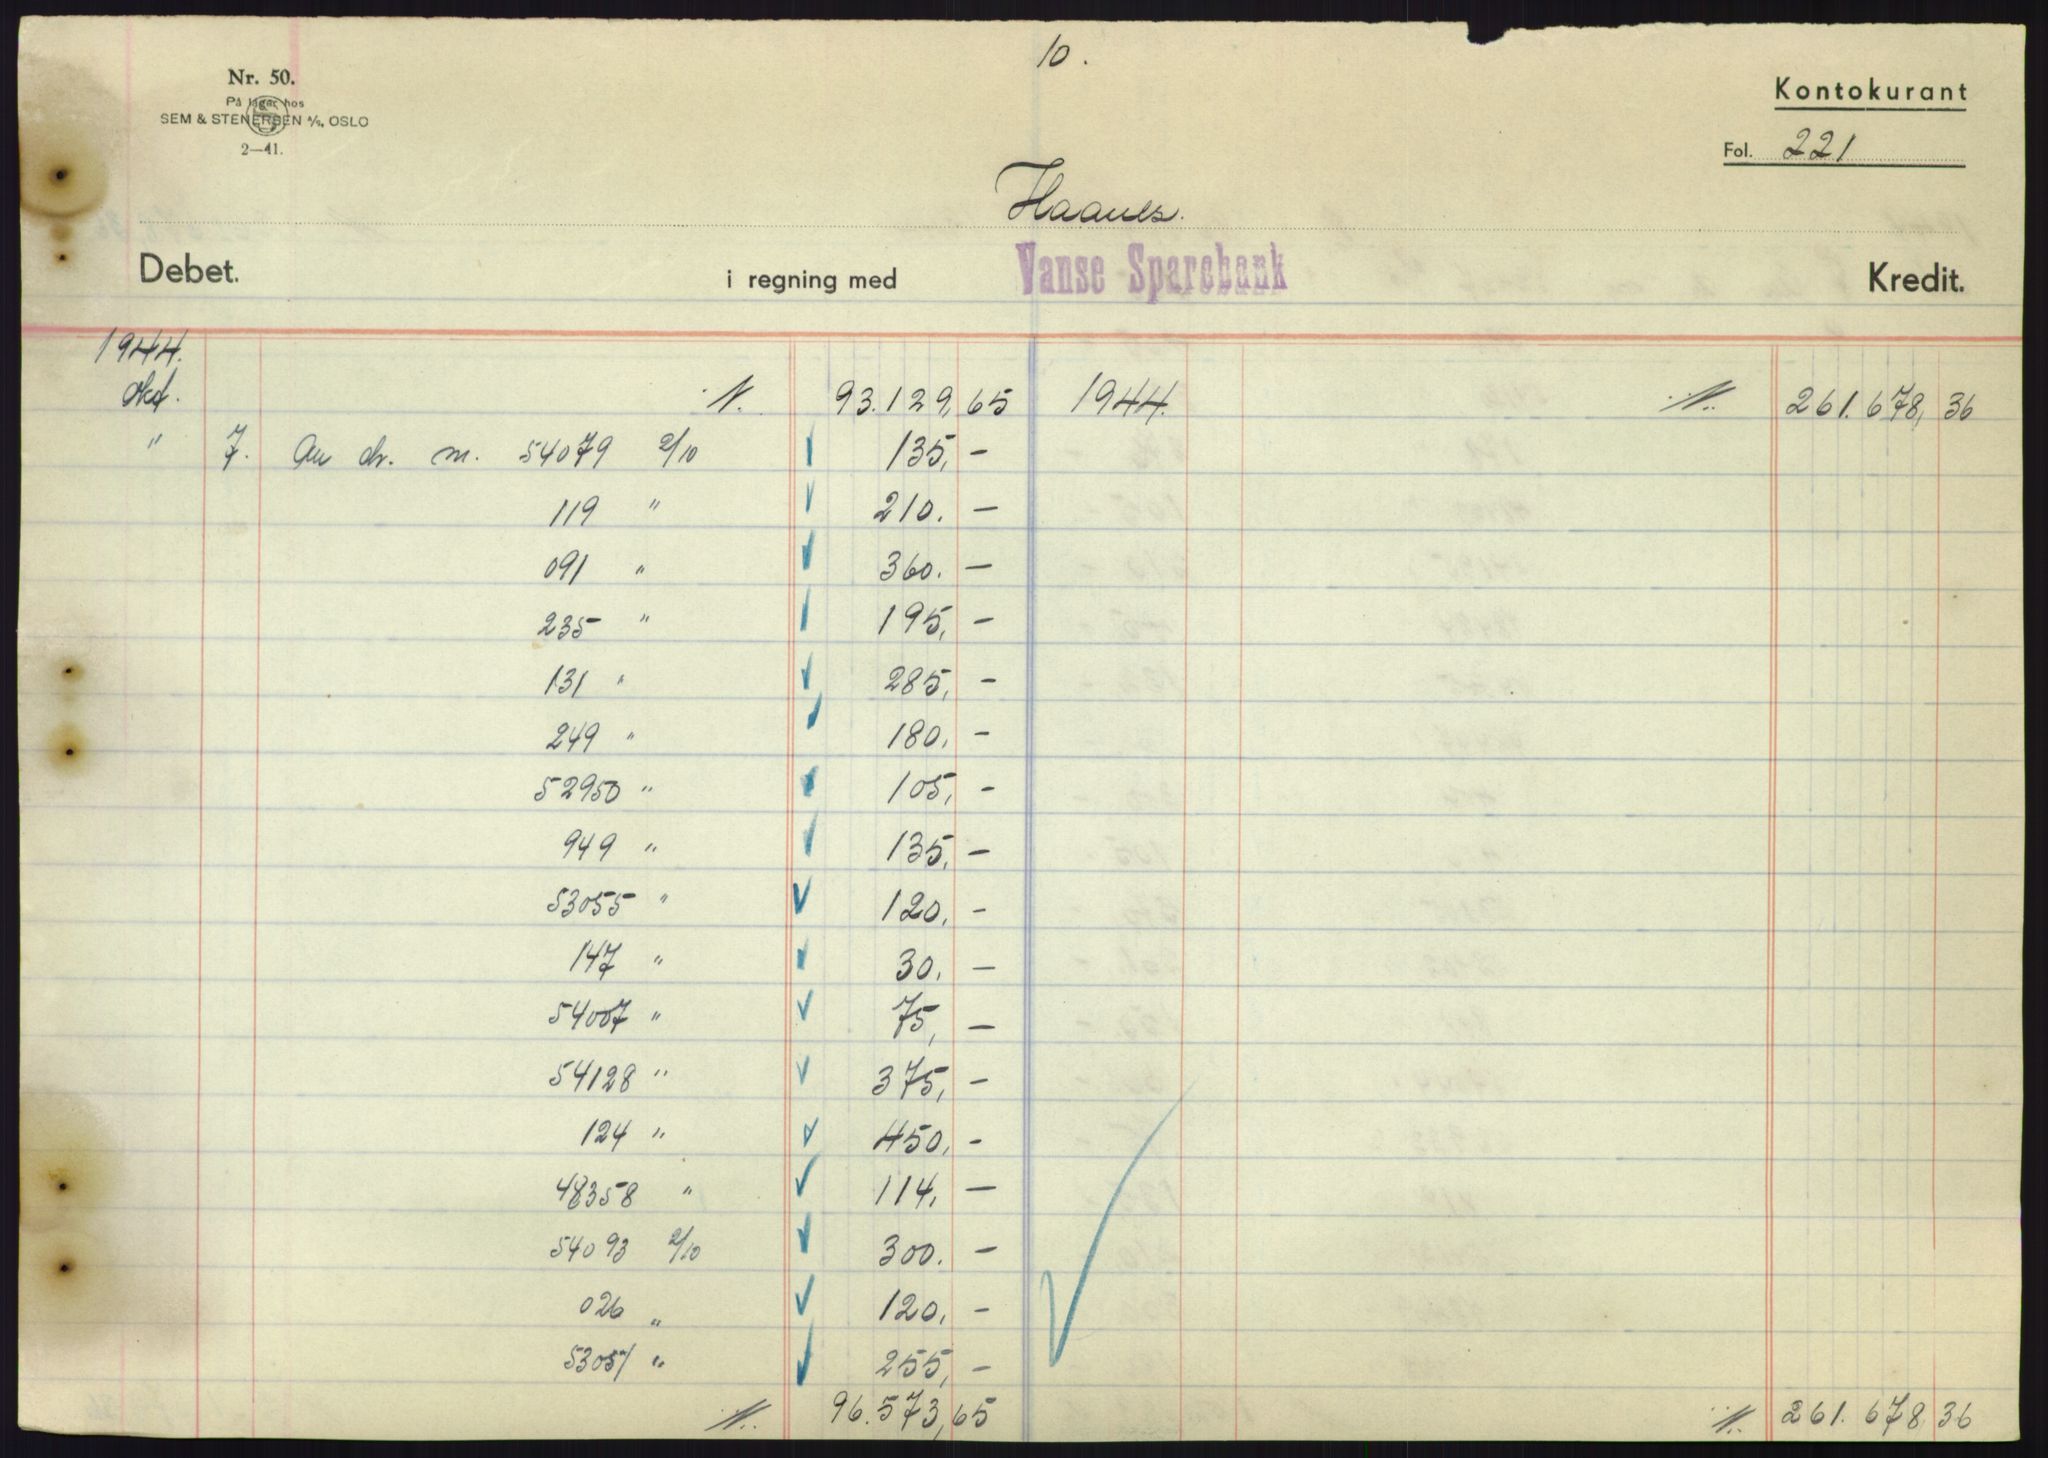 10.
Nr. 50.
På lager hos
SEM & STENERSEN A/S, OSLO
2—41.
Kontokurant
Fol. 221
Haanes.
Debet. i regning med Vanse Sparebank Kredit.
1944.
okt. 93.129,65 1944. 261.678,36
" 7. An ch. m. 54079 2/10 135,-
119 " 210.-
091 " 360.-
235 " 195,-
131 " 285,-
249 " 180,-
52950 " 105,-
949 " 135,-
53055 " 120,-
147 " 30,-
54007 " 75,-
54128 " 375,-
124 " 450,-
48358 " 114,-
54093 2/10 300.-
026 " 120,-
53051 " 255,-
96.573,65 261.678,36